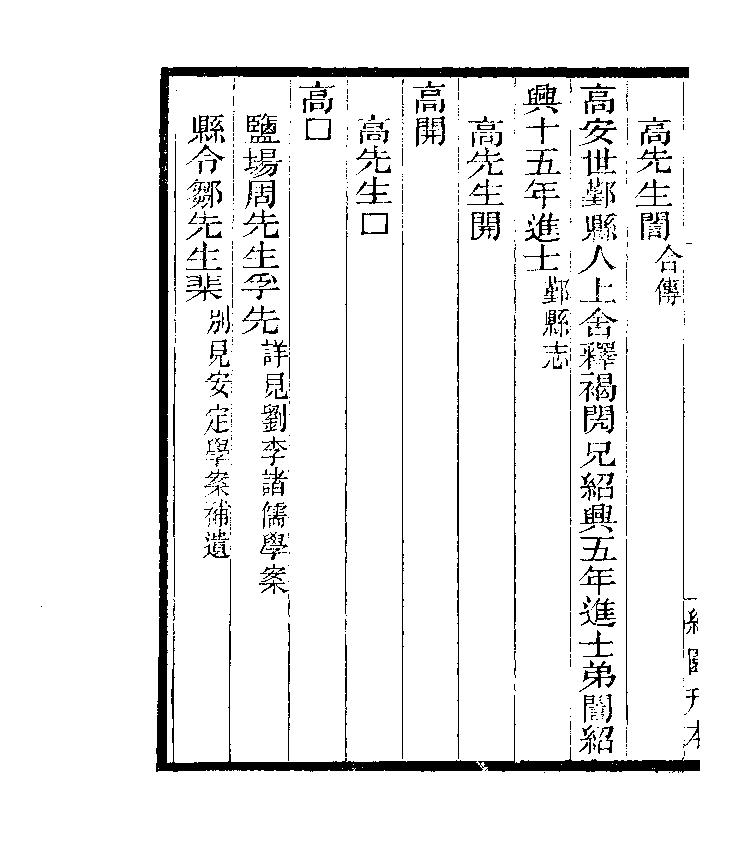 高先生誾合傳
高安世鄞縣人上舍釋褐閌兄紹興五年進士弟誾紹
興十五年進士鄞縣志
高先生開
高開
高先生□
高□
鹽場周先生孚先詳見劉李諸儒學案
縣令鄒先生棐別見安定學案補遺